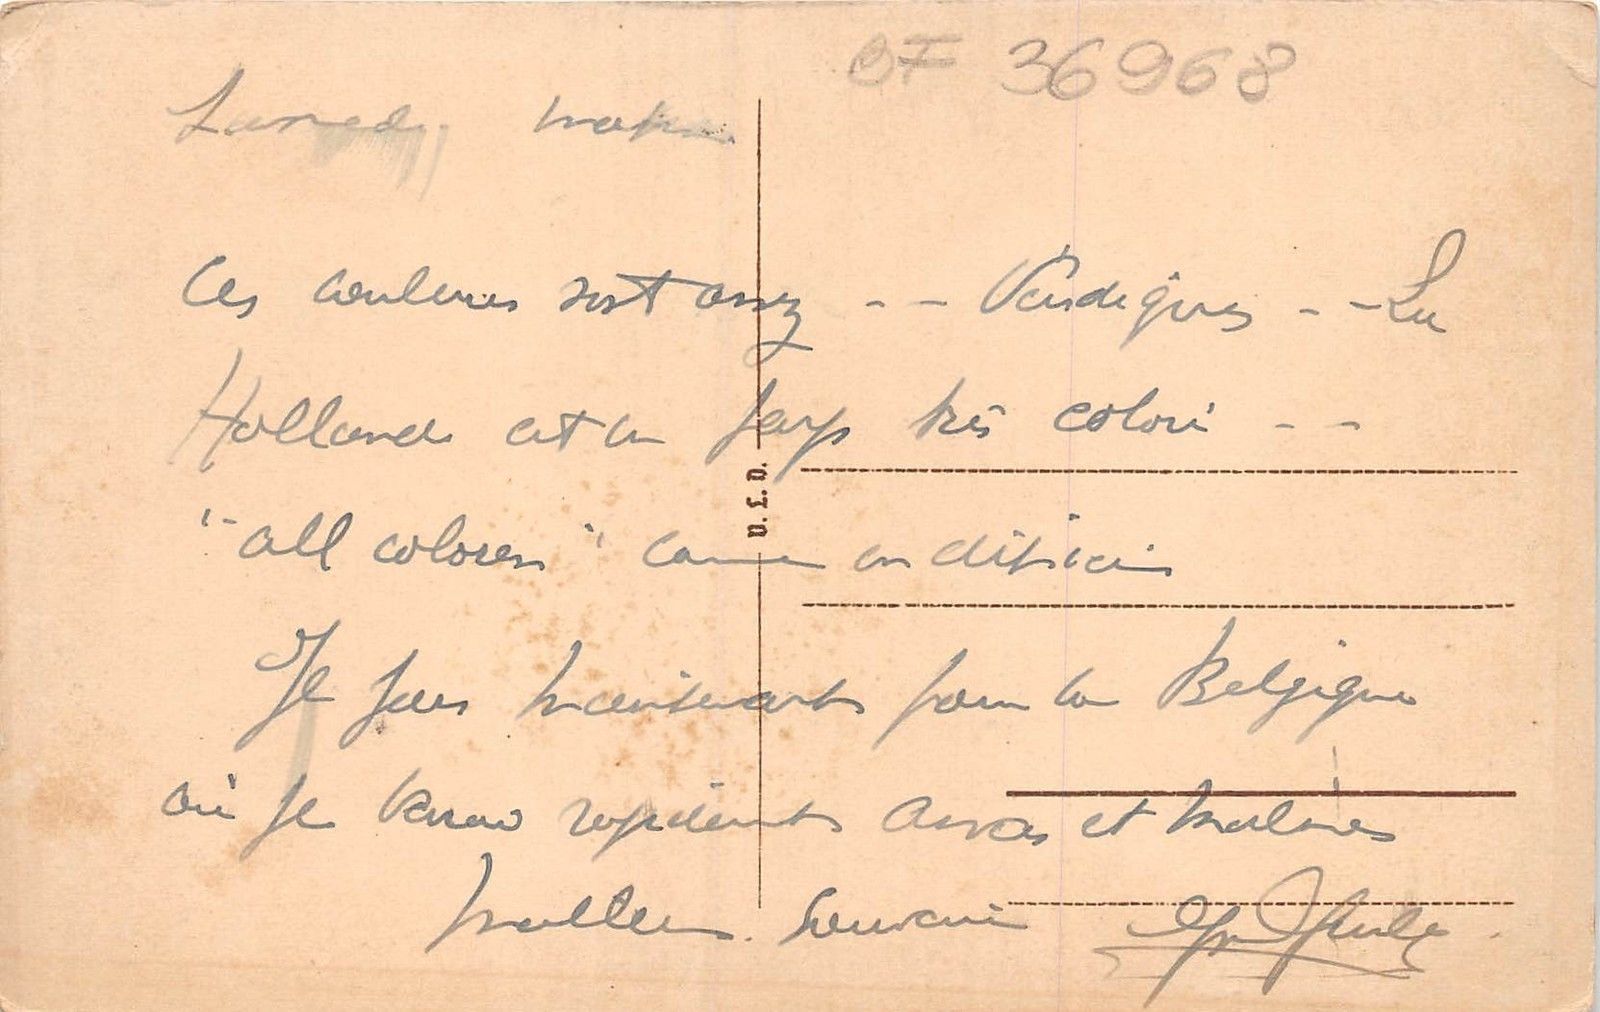 36968
Samedi matin
Ces couleurs sont assez -- -- La
Hollande est un pays très coloré --
"all colores" comme on dit ici
Je pars maintenant pour la Belgique
où je verrai rapidement Anvers et Malines
Meilleur Souvenir
U.E.D.